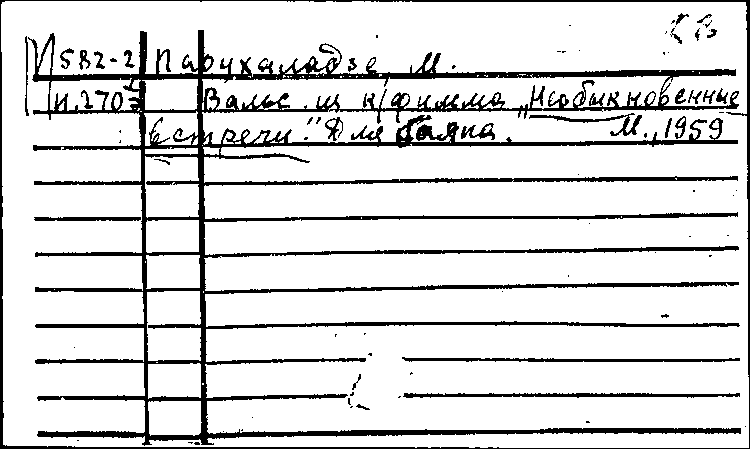 КВ
И582-2 Парцхаладзе, М.
И.270 Вальс из к/фильма „Необыкновенные
встречи." Для баяна. М., 1959